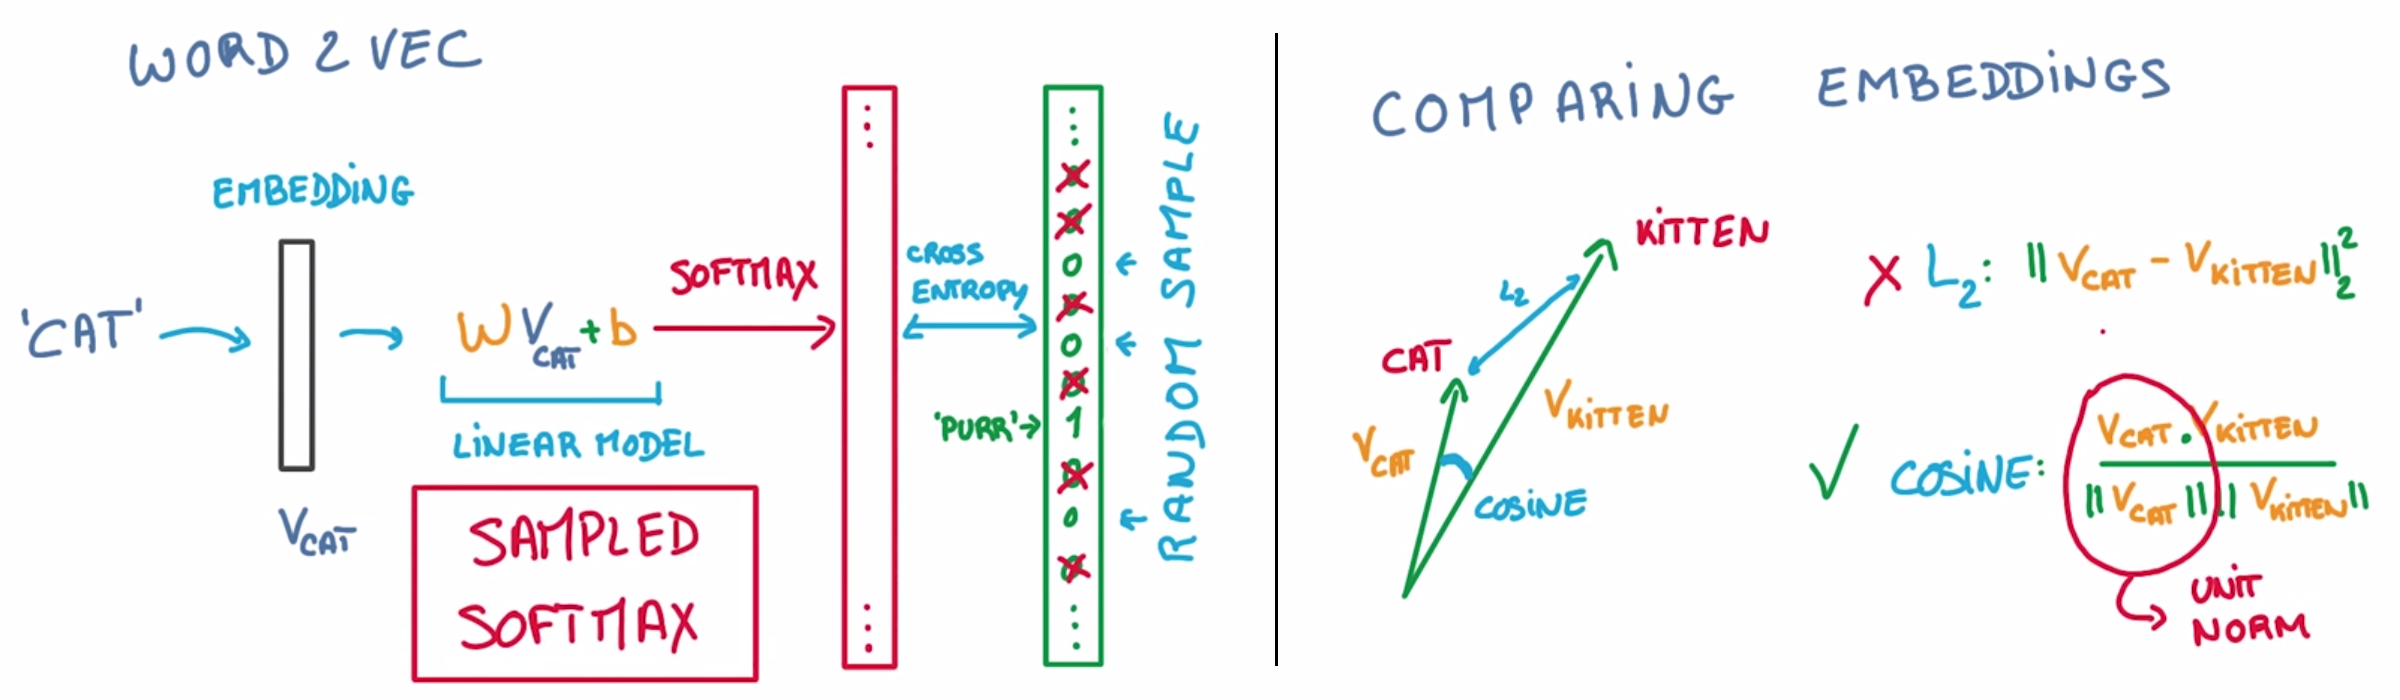 WORD 2 VEC
EMBEDDING
'CAT'
V CAT
W V CAT + b
LINEAR MODEL
SAMPLED
SOFTMAX
SOFTMAX
CROSS
ENTROPY
'PURR'
0
0
0
0
0
0
1
0
0
0
RANDOM SAMPLE
COMPARING EMBEDDINGS
KITTEN
L2
CAT
V CAT
V KITTEN
COSINE
X L2: || V CAT - V KITTEN ||₂²
✓ COSINE:
V CAT . V KITTEN
|| V CAT || . || V KITTEN ||
UNIT
NORM